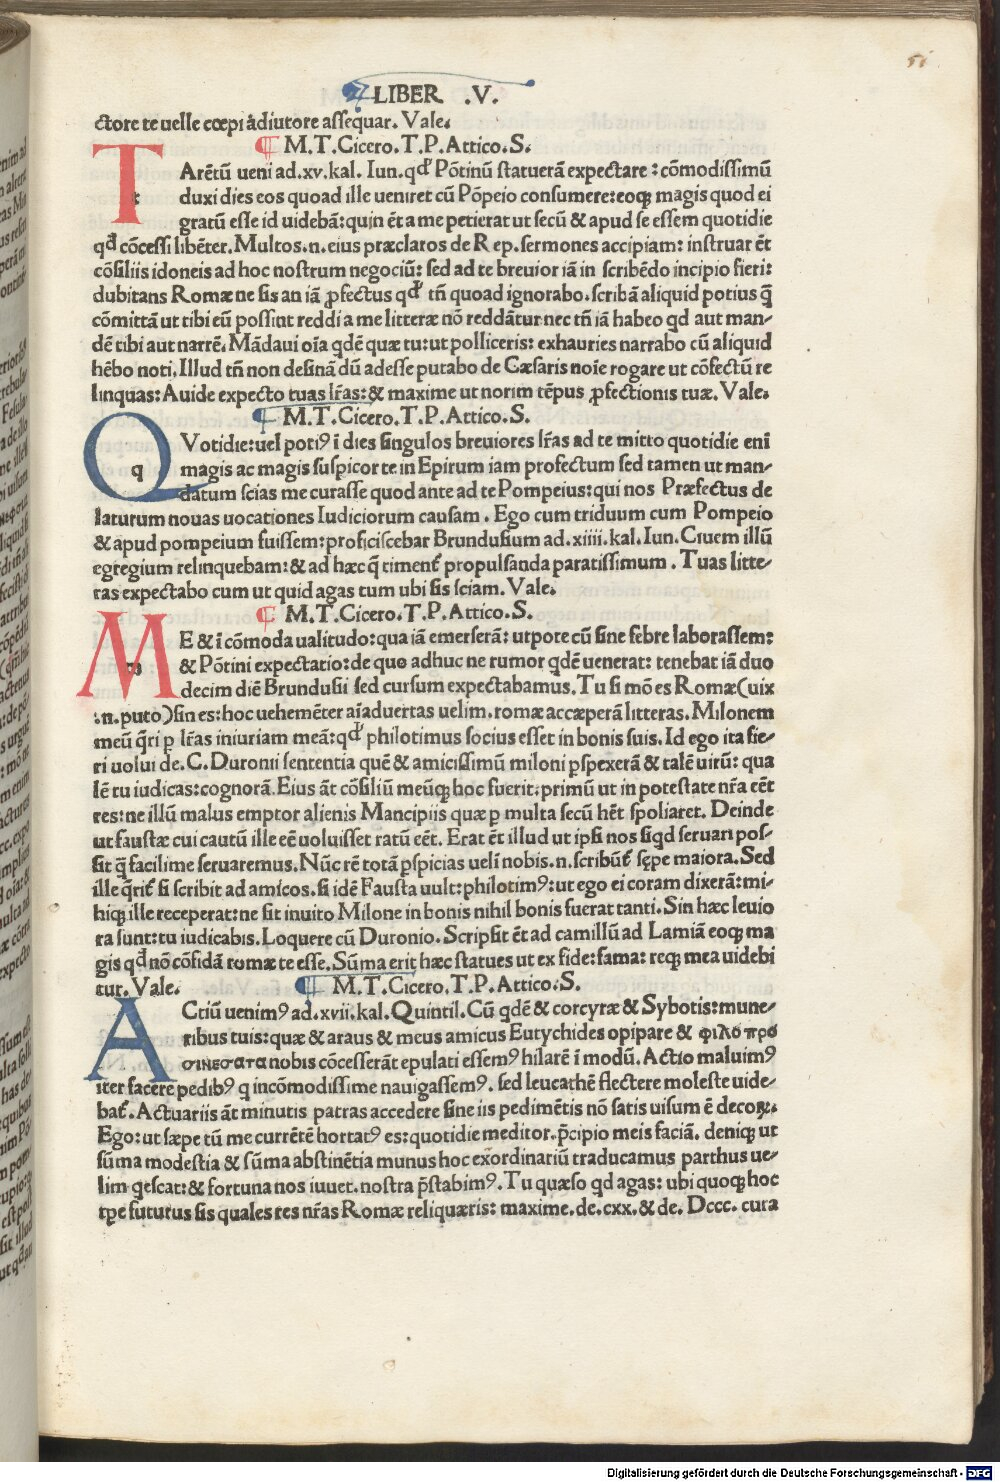 51
LIBER .V.
ctore te uelle cœpi adiutore assequar. Vale.
¶ M.T.Cicero.T.P.Attico.S.
TArētū ueni ad.xv.kal. Iun.qđ Pōtinū statuerā expectare: cōmodissimū
duxi dies eos quoad ille ueniret cū Pōpeio consumere:eoq; magis quod ei
gratū esse id uidebā:quin ēt a me petierat ut secū & apud se essem quotidie
qđ cōcessi libēter. Multos.n.eius præclaros de Rep.sermones accipiam: instruar ēt
cōsiliis idoneis ad hoc nostrum negociū: sed ad te breuior iā in scribēdo incipio fieri:
dubitans Romæ ne sis an iā ꝓfectus qđ tñ quoad ignorabo.scribā aliquid potius q̄
cōmittā ut tibi cū possint reddi a me litteræ nō reddātur nec tñ iā habeo qd aut man-
dē tibi aut narrē. Mādaui oīa qdē quæ tu:ut polliceris: exhauries narrabo cū aliquid
hēbo noti. Illud tñ non desinā dū adesse putabo de Cæsaris noīe rogare ut cōfectū re
linquas: Auide expecto tuas lr̄as:& maxime ut norim tēpus ꝓfectionis tuæ. Vale.
¶ M.T.Cicero.T.P.Attico.S.
q
QVotidie:uel potiꝰ ī dies singulos breuiores lr̄as ad te mitto quotidie enī
magis ac magis suspicor te in Epirum iam profectum sed tamen ut man-
datum scias me curasse quod ante ad te Pompeius:qui nos Præfectus de
laturum nouas uocationes Iudiciorum causam. Ego cum triduum cum Pompeio
& apud pompeium fuissem:proficiscebar Brundusium ad.xiiii.kal.Iun. Ciuem illū
egregium relinquebam:& ad hæc q̄ timent̄ propulsanda paratissimum. Tuas litte-
ras expectabo cum ut quid agas tum ubi sis sciam. Vale.
¶ M.T.Cicero.T.P.Attico.S.
ME & ī cōmoda ualitudo:qua iā emerserā: utpote cū sine febre laborassem:
& Pōtini expectatio:de quo adhuc ne rumor qdē uenerat: tenebat iā duo
decim diē Brundusii sed cursum expectabamus. Tu si mō es Romæ(uix
.n.puto)sin es:hoc uehemēter aīaduertas uelim.romæ accæperā litteras. Milonem
meū q̄ri p lr̄as iniuriam meā:qđ philotimus socius esset in bonis suis. Id ego ita fie-
ri uolui de.C.Duronii sententia quē & amicissimū miloni pspexerā & talē uirū: qua
lē tu iudicas:cognorā.Eius āt cōsiliū meūq; hoc fuerit:primū ut in potestate nr̄a eēt
res:ne illū malus emptor alienis Mancipiis quæ p multa secū hēt spoliaret. Deinde
ut faustæ cui cautū ille eē uoluisset ratū eēt. Erat ēt illud ut ipsi nos siqd seruari pos-
sit q̄ facilime seruaremus. Nūc rē totā pspicias uelī nobis.n.scribūt̄ sępe maiora.Sed
ille q̄rit̄ si scribit ad amicos.si idē Fausta uult:philotimꝰ:ut ego ei coram dixerā:mi-
hiq; ille receperat:ne sit inuito Milone in bonis nihil bonis fuerat tanti.Sin hæc leuio
ra sunt:tu iudicabis.Loquere cū Duronio.Scripsit ēt ad camillū ad Lamiā eoq; ma
gis qđ nō cōfidā romæ te esse. Sūma erit hæc statues ut ex fide:fama: req; mea uidebi
tur. Vale.
¶ M.T.Cicero.T.P.Attico.S.
ACtiū uenimꝰ ad.xvii.kal.Quintil. Cū qdē & corcyræ & Sybotis:mune-
ribus tuis:quæ & araus & meus amicus Eutychides opipare & φιλοπρο
σινεσατα nobis cōcesserāt epulati essemꝰ hilarē ī modū. Actio maluimꝰ
iter facere pedibꝰ q incōmodissime nauigassemꝰ. sed leucathē flectere moleste uide-
bat̄. Actuariis āt minutis patras accedere sine iis pedimētis nō satis uisum ē decoꝝ.
Ego:ut sæpe tū me currētē hortatꝰ es:quotidie meditor.p̄cipio meis faciā. deniq; ut
sūma modestia & sūma abstinētia munus hoc exordinariū traducamus parthus ue-
lim qescat:& fortuna nos iuuet.nostra p̄stabimꝰ. Tu quæso qd agas: ubi quoq; hoc
tp̄e futurus sis quales res nr̄as Romæ reliquæris: maxime.de.cxx.& de. Dccc. cura
Digitalisierung gefördert durch die Deutsche Forschungsgemeinschaft - DFG